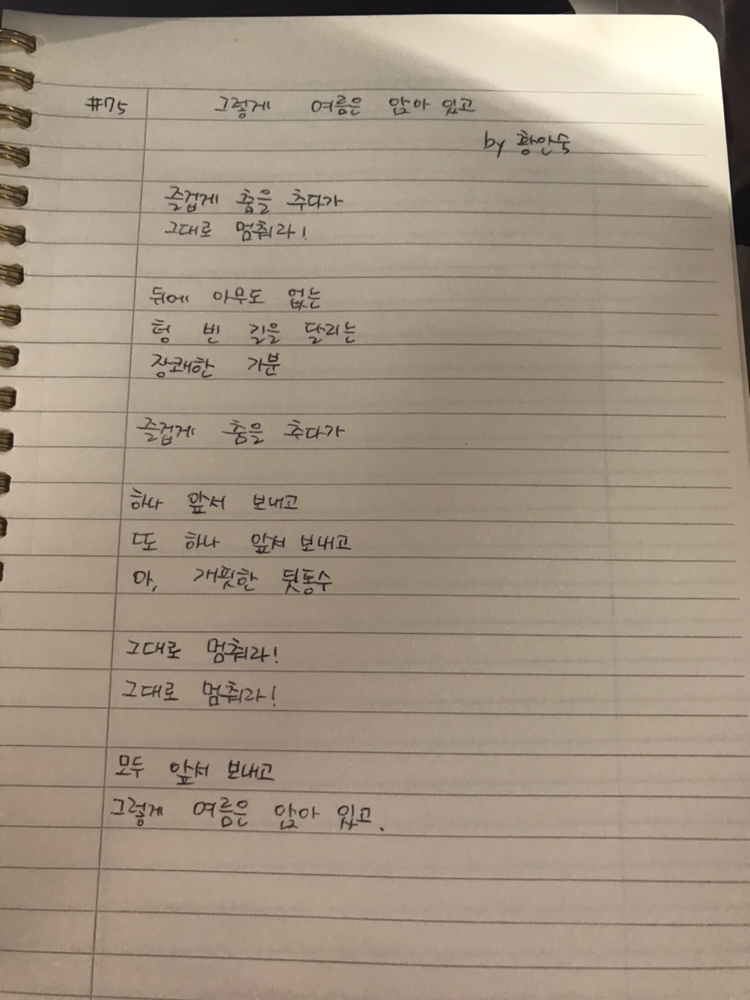 #75 그렇게 여름은 앉아 있고
by 황인숙
즐겁게 춤을 추다가
그대로 멈춰라!
뒤에 아무도 없는
텅 빈 길을 달리는
장쾌한 기분
즐겁게 춤을 추다가
하나 앞서 보내고
또 하나 앞서 보내고
아, 개핏한 뒷통수
그대로 멈춰라!
그대로 멈춰라!
모두 앞서 보내고
그렇게 여름은 앉아 있고.